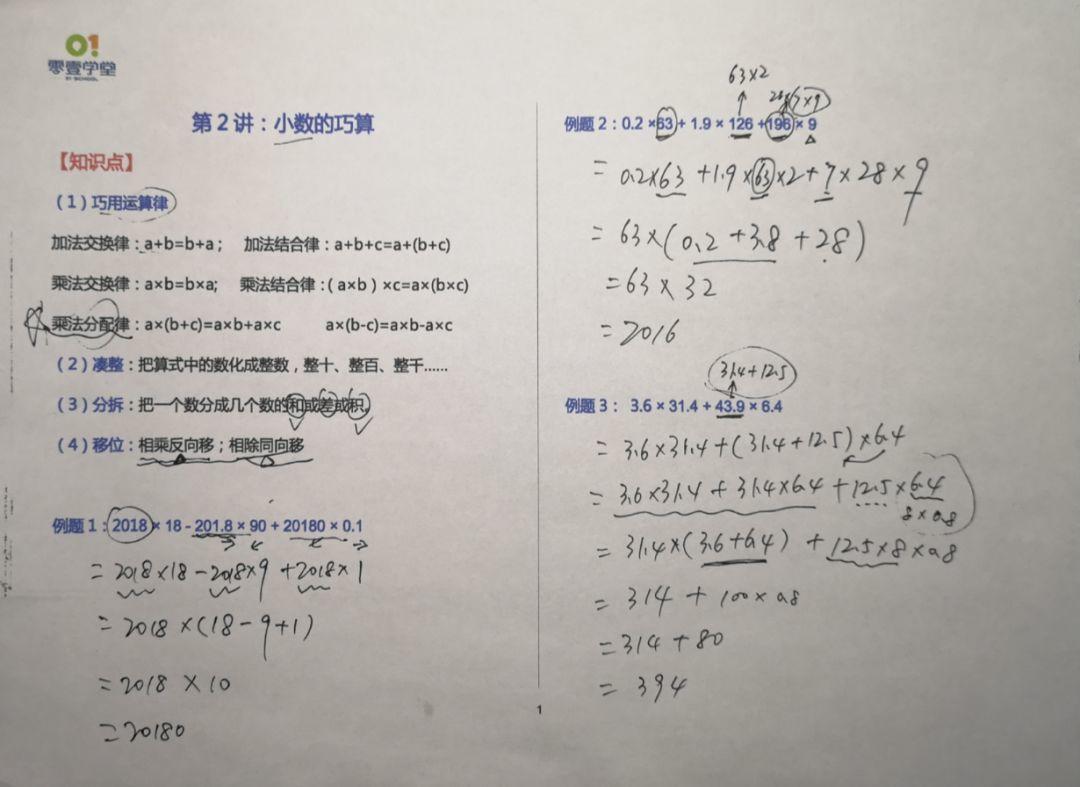 01
零壹学堂
01-SCHOOL
第2讲：小数的巧算
【知识点】
（1）巧用运算律
加法交换律：a+b=b+a； 加法结合律：a+b+c=a+(b+c)
乘法交换律：a×b=b×a; 乘法结合律：(a×b）×c=a×(b×c)
乘法分配律：a×(b+c)=a×b+a×c a×(b-c)=a×b-a×c
（2）凑整：把算式中的数化成整数，整十、整百、整千......
（3）分拆：把一个数分成几个数的和或差或积。
（4）移位：相乘反向移；相除同向移
例题1：2018×18-201.8×90+20180×0.1
=2018×18-2018×9+2018×1
=2018×(18-9+1)
=2018×10
=20180
63×2
28×7×9
例题2：0.2×63+1.9×126+196×9
=0.2×63+1.9×63×2+7×28×9
=63×(0.2+3.8+28)
=63×32
=2016
31.4+12.5
例题3： 3.6×31.4+43.9×6.4
=3.6×31.4+(31.4+12.5)×6.4
=3.6×31.4+31.4×6.4+12.5×6.4
8×0.8
=31.4×(3.6+6.4)+12.5×8×0.8
=314+100×0.8
=314+80
=394
1